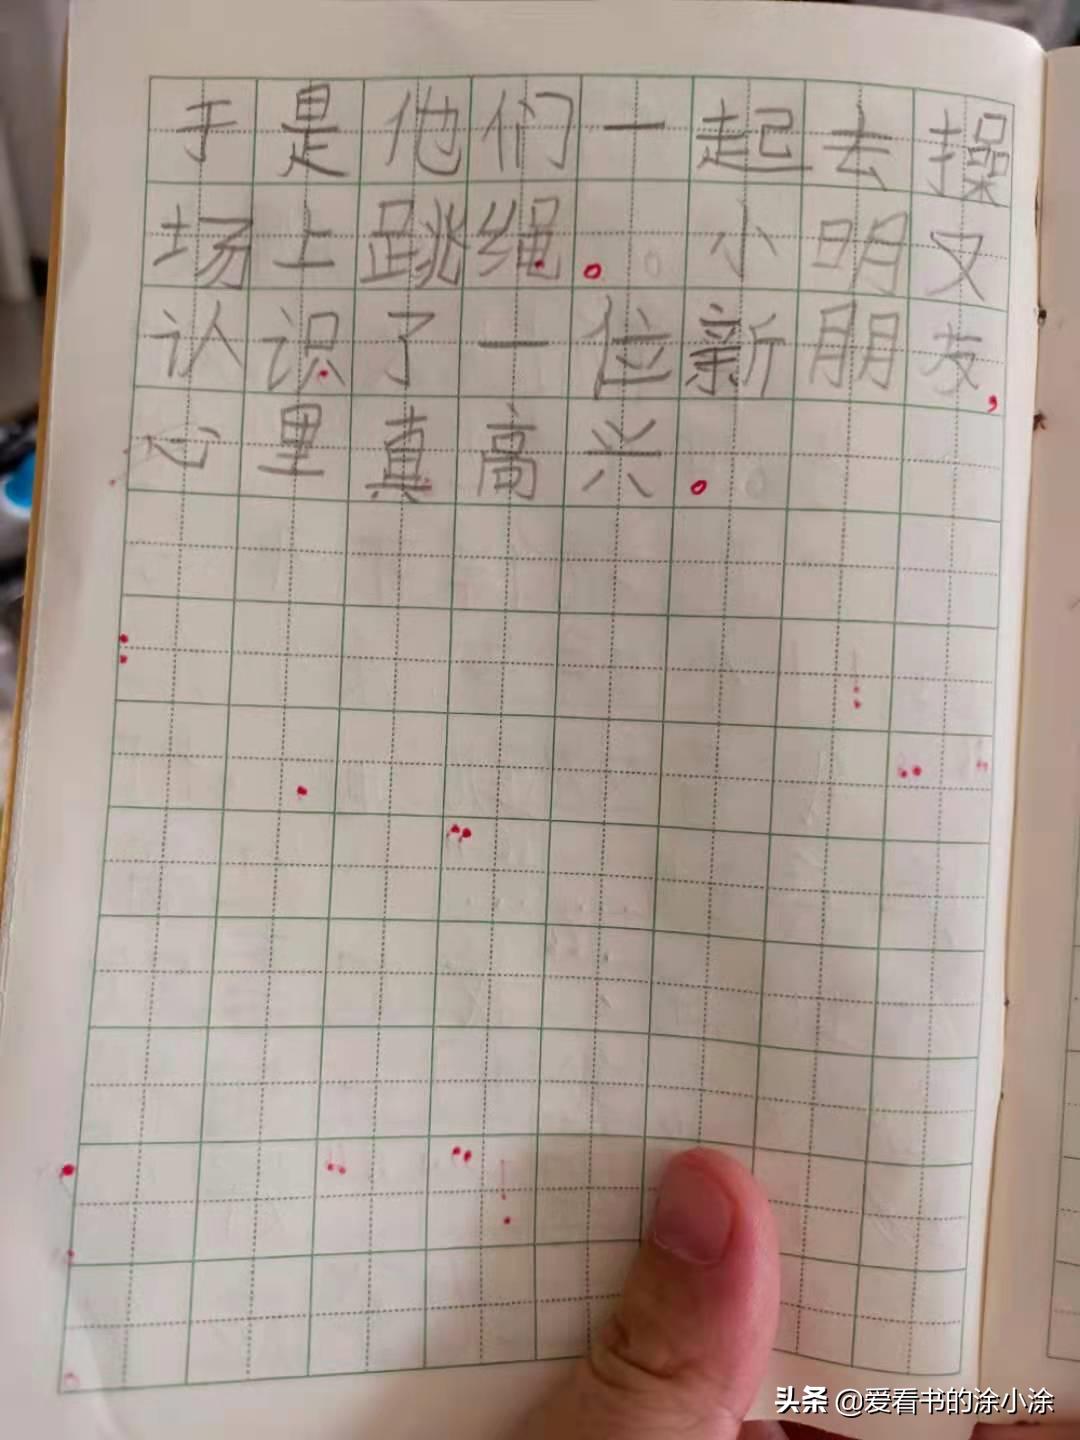 于是他们一起去操
场上跳绳。小明又
认识了一位新朋友,
心里真高兴。
头条 @爱看书的涂小涂